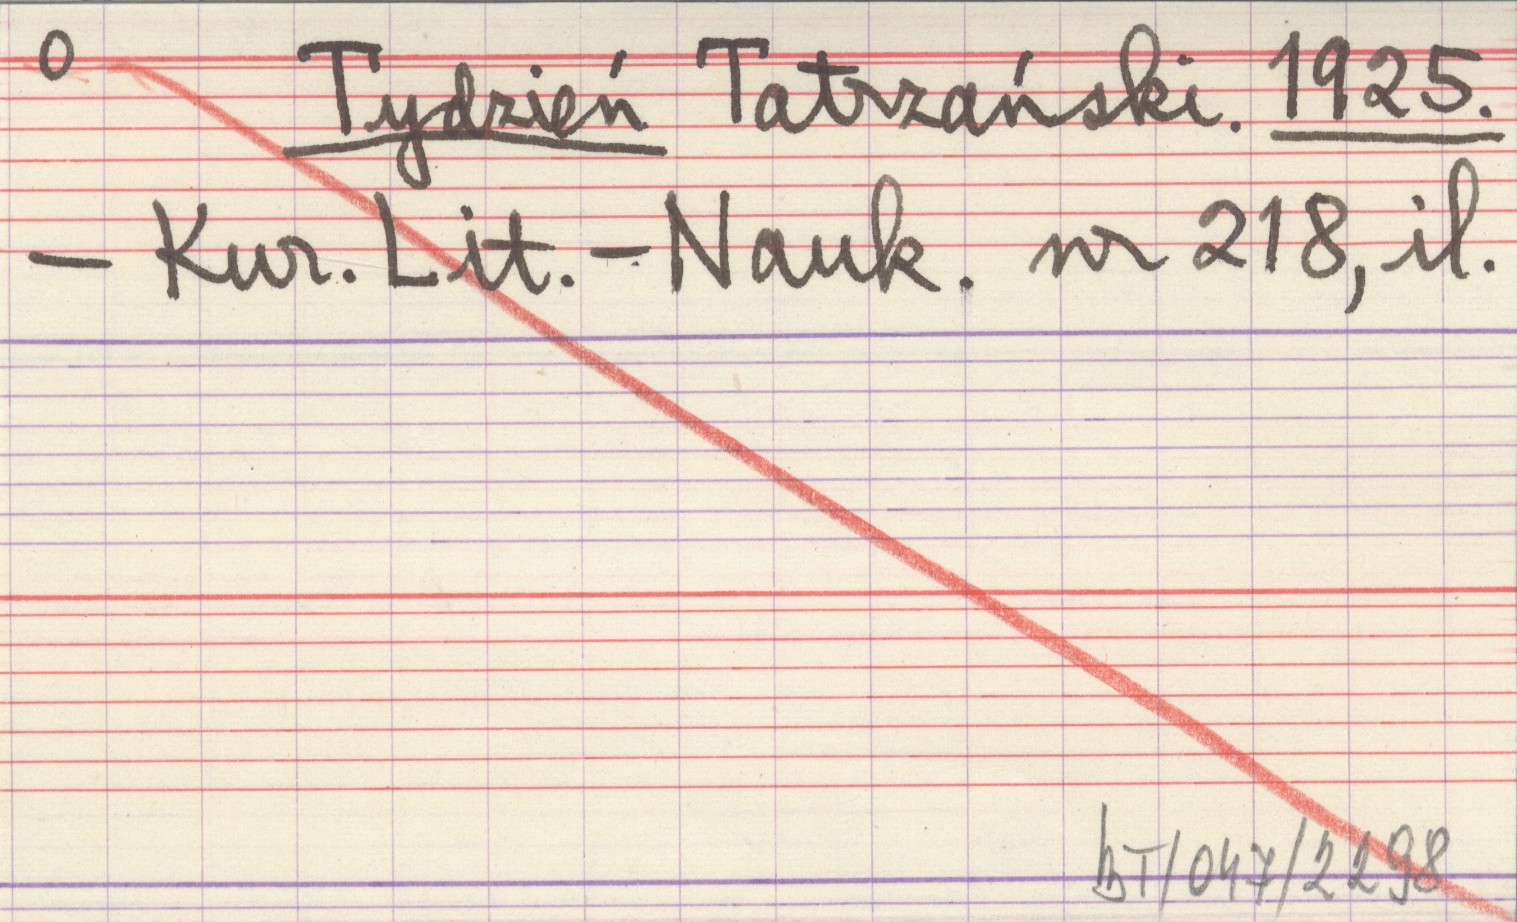 0 Tydzień Tatrzański. 1925.
— Kur. Lit.-Nauk. nr 218, il.
BT/047/2298